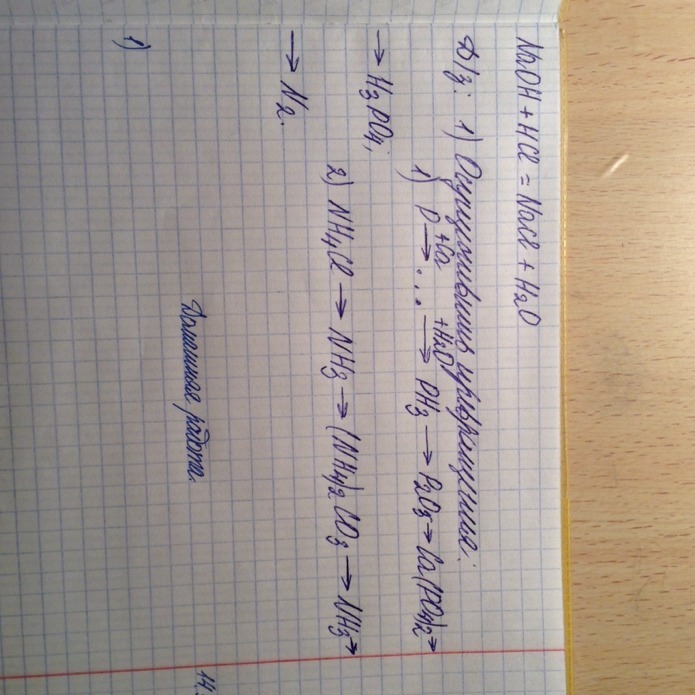 NaOH + HCl = NaCl + H2O
Д/з: 1) Осуществить превращения:
1) P →(+Ca) ... →(+H2O) PH3 → P2O3 → Ca(PO4)2 →
→ H3PO4;
2) NH4Cl → NH3 → (NH4)2CO3 → NH3 →
→ N2.
Домашняя работа.
14.
1)